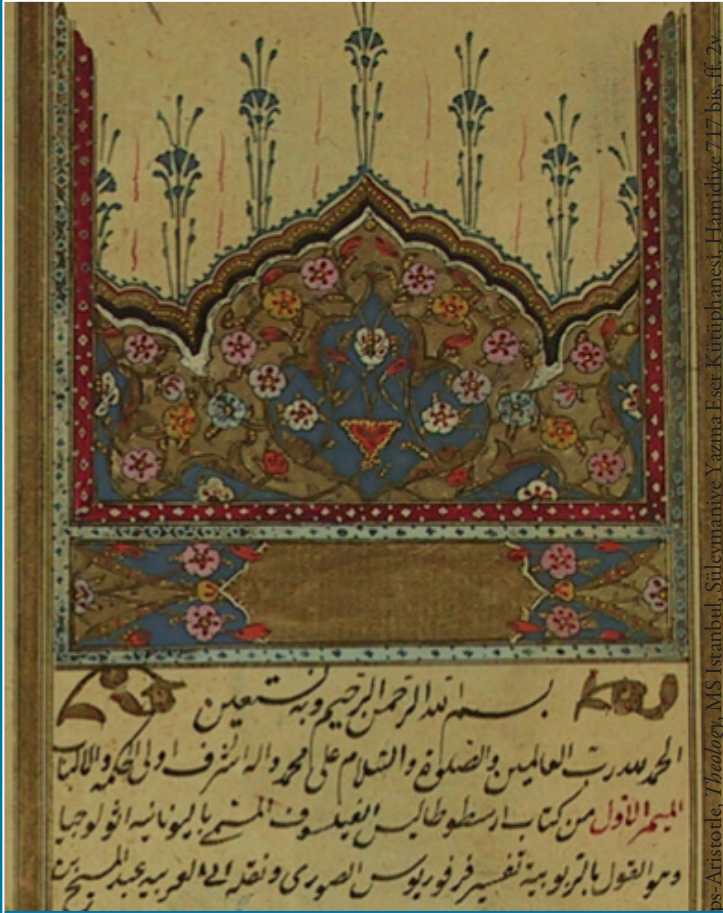 بسم الله الرحمن الرحيم وبه نستعين
الحمد لله رب العالمين والصلوة والسلام على محمد واله اشرف اولى الحكمة والالباب
الميمر الأول من كتاب ارسطوطاليس الفيلسوف المسمى باليونانيه اثولوجيا
وهو القول بالربوبية تفسير فرفوريوس الصورى ونقله الى العربيه عبد المسيح بن
ps-Aristotle, Theology. MS Istanbul, Süleymaniye Yazma Eser Kütüphanesi, Hamidiye 717 bis, ff. 2v